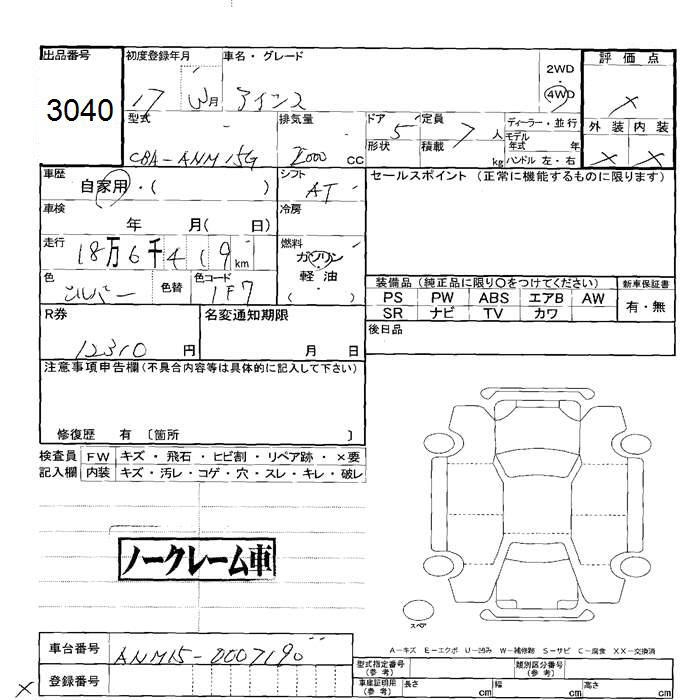 出品番号
3040
初度登録年月
車名・グレード
17 ω月 アイシス
2WD
4WD
評価点
×
外装 内装
× ×
型式
CBA-ANM15G
排気量
2000 cc
ドア 5
形状
定員 7 人
積載 kg
ディーラー・並行
モデル年式 年
ハンドル 左・右
車歴
自家用・( )
シフト
AT
セールスポイント (正常に機能するものに限ります)
車検
年 月( 日)
冷房
走行
18万6千419km
燃料
ガソリン
軽油
( )
色
シルバー
色替
色コード
1F7
装備品 (純正品に限り○をつけてください)
新車保証書
PS PW ABS エアB AW
有・無
SR ナビ TV カワ
後日品
R券
12310 円
名変通知期限
月 日
注意事項申告欄(不具合内容等は具体的に記入して下さい)
修復歴 有 〔箇所 〕
検査員 FW キズ・飛石・ヒビ割・リペア跡・×要
記入欄 内装 キズ・汚レ・コゲ・穴・スレ・キレ・破レ
ノークレーム車
スペア
A-キズ E-エクボ U-凹み W-補修跡 S-サビ C-腐食 XX-交換済
車台番号
ANM15-0007190
登録番号
×
型式指定番号
(参考)
類別区分番号
(参考)
車庫証明用
(参考)
長さ cm 幅 cm 高さ cm